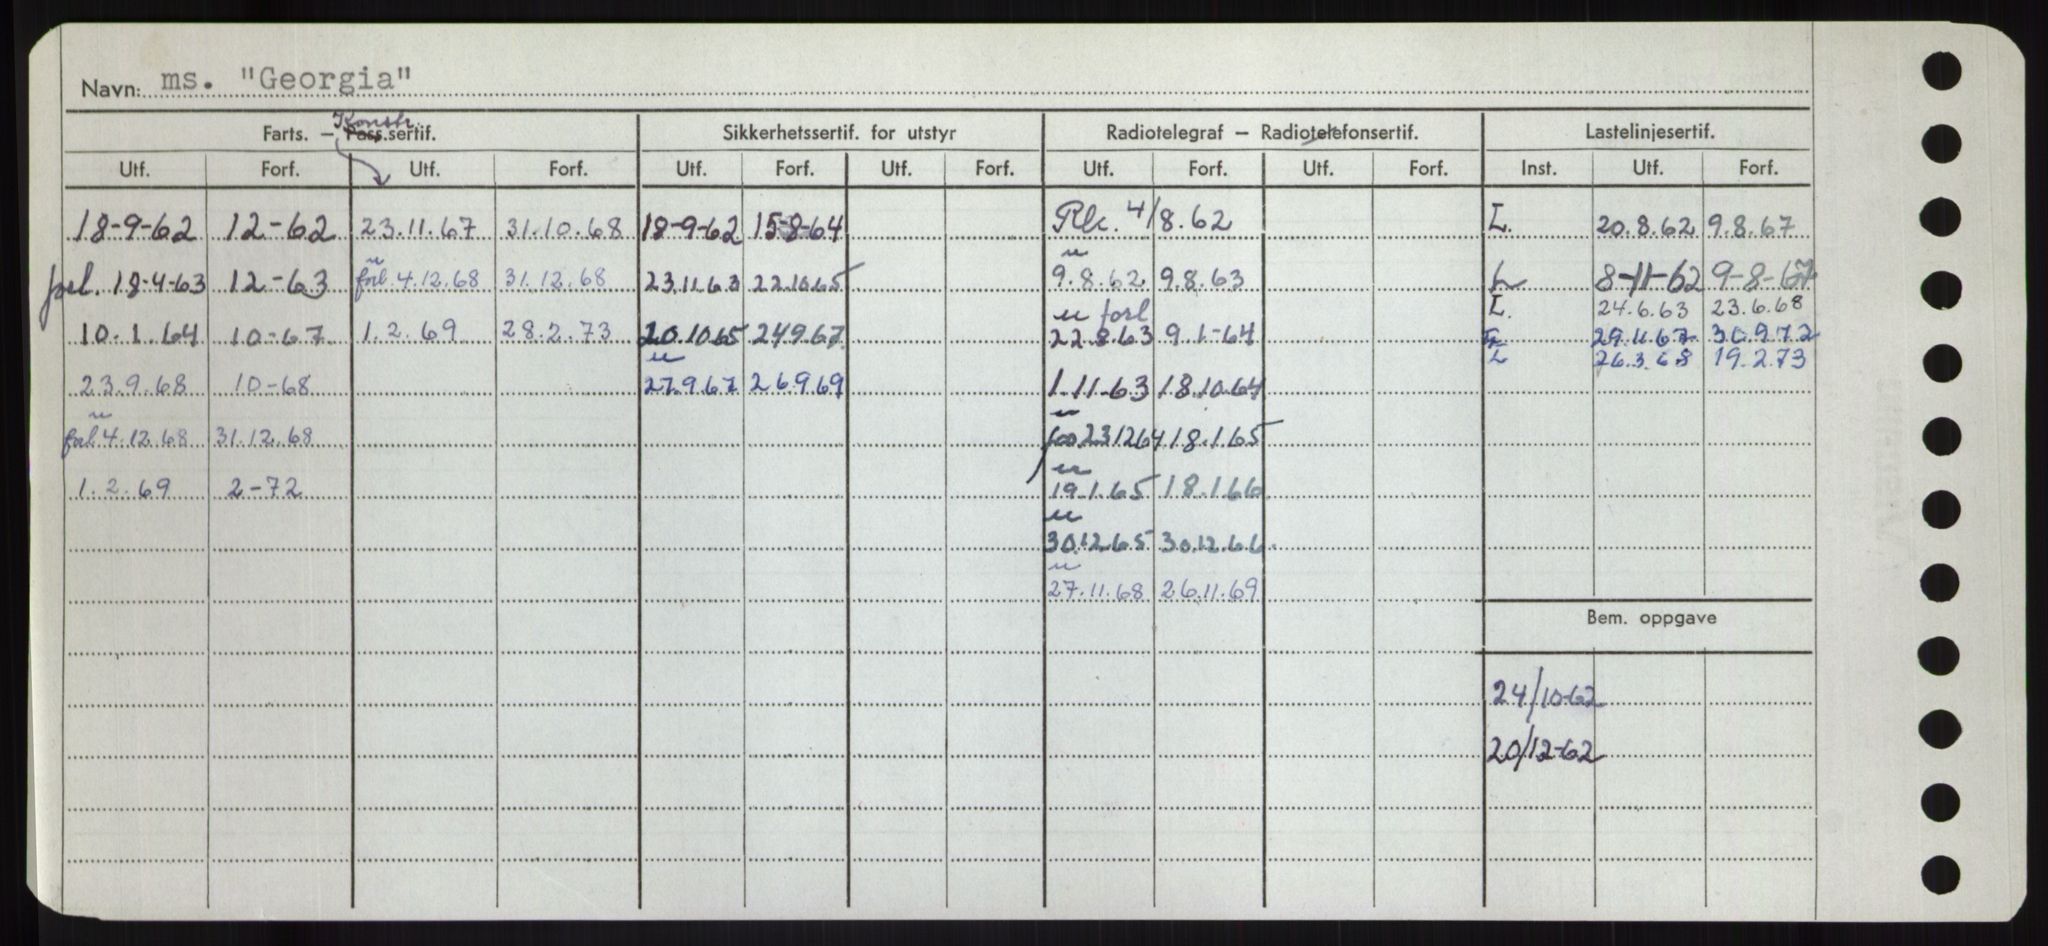 Navn: ms. "Georgia"
Farts. – Konstr. Pass.sertif. Sikkerhetssertif. for utstyr Radiotelegraf – Radiotelefonsertif. Lastelinjesertif.
Utf. Forf. Utf. Forf. Utf. Forf. Utf. Forf. Utf. Forf. Utf. Forf. Inst. Utf. Forf.
18-9-62 12-62 23.11.67 31.10.68 18-9-62 15-8-64 4/8.62 L. 20.8.62 9.8.67
forl. 18-4-63 12-63 forl. 4.12.68 31.12.68 23.11.63 22.10.65 9.8.62 9.8.63 L 8-11-62 9-8-67
u forl L. 24.6.63 23.6.68
10.1.64 10-67 1.2.69 28.2.73 20.10.65 24.9.67 22.8.63 9.1-64 29.11.67 30.9.72
u L 26.3.68 19.2.73
23.9.68 10-68 27.9.67 26.9.69 1.11-63 18.10.64
u u
forl 4.12.68 31.12.68 23.12.64 18.1.65
u
1.2.69 2-72 19.1.65 18.1.66
u
30.12.65 30.12.66
u
27.11.68 26.11.69
Bem. oppgave
24/10-62
20/12-62